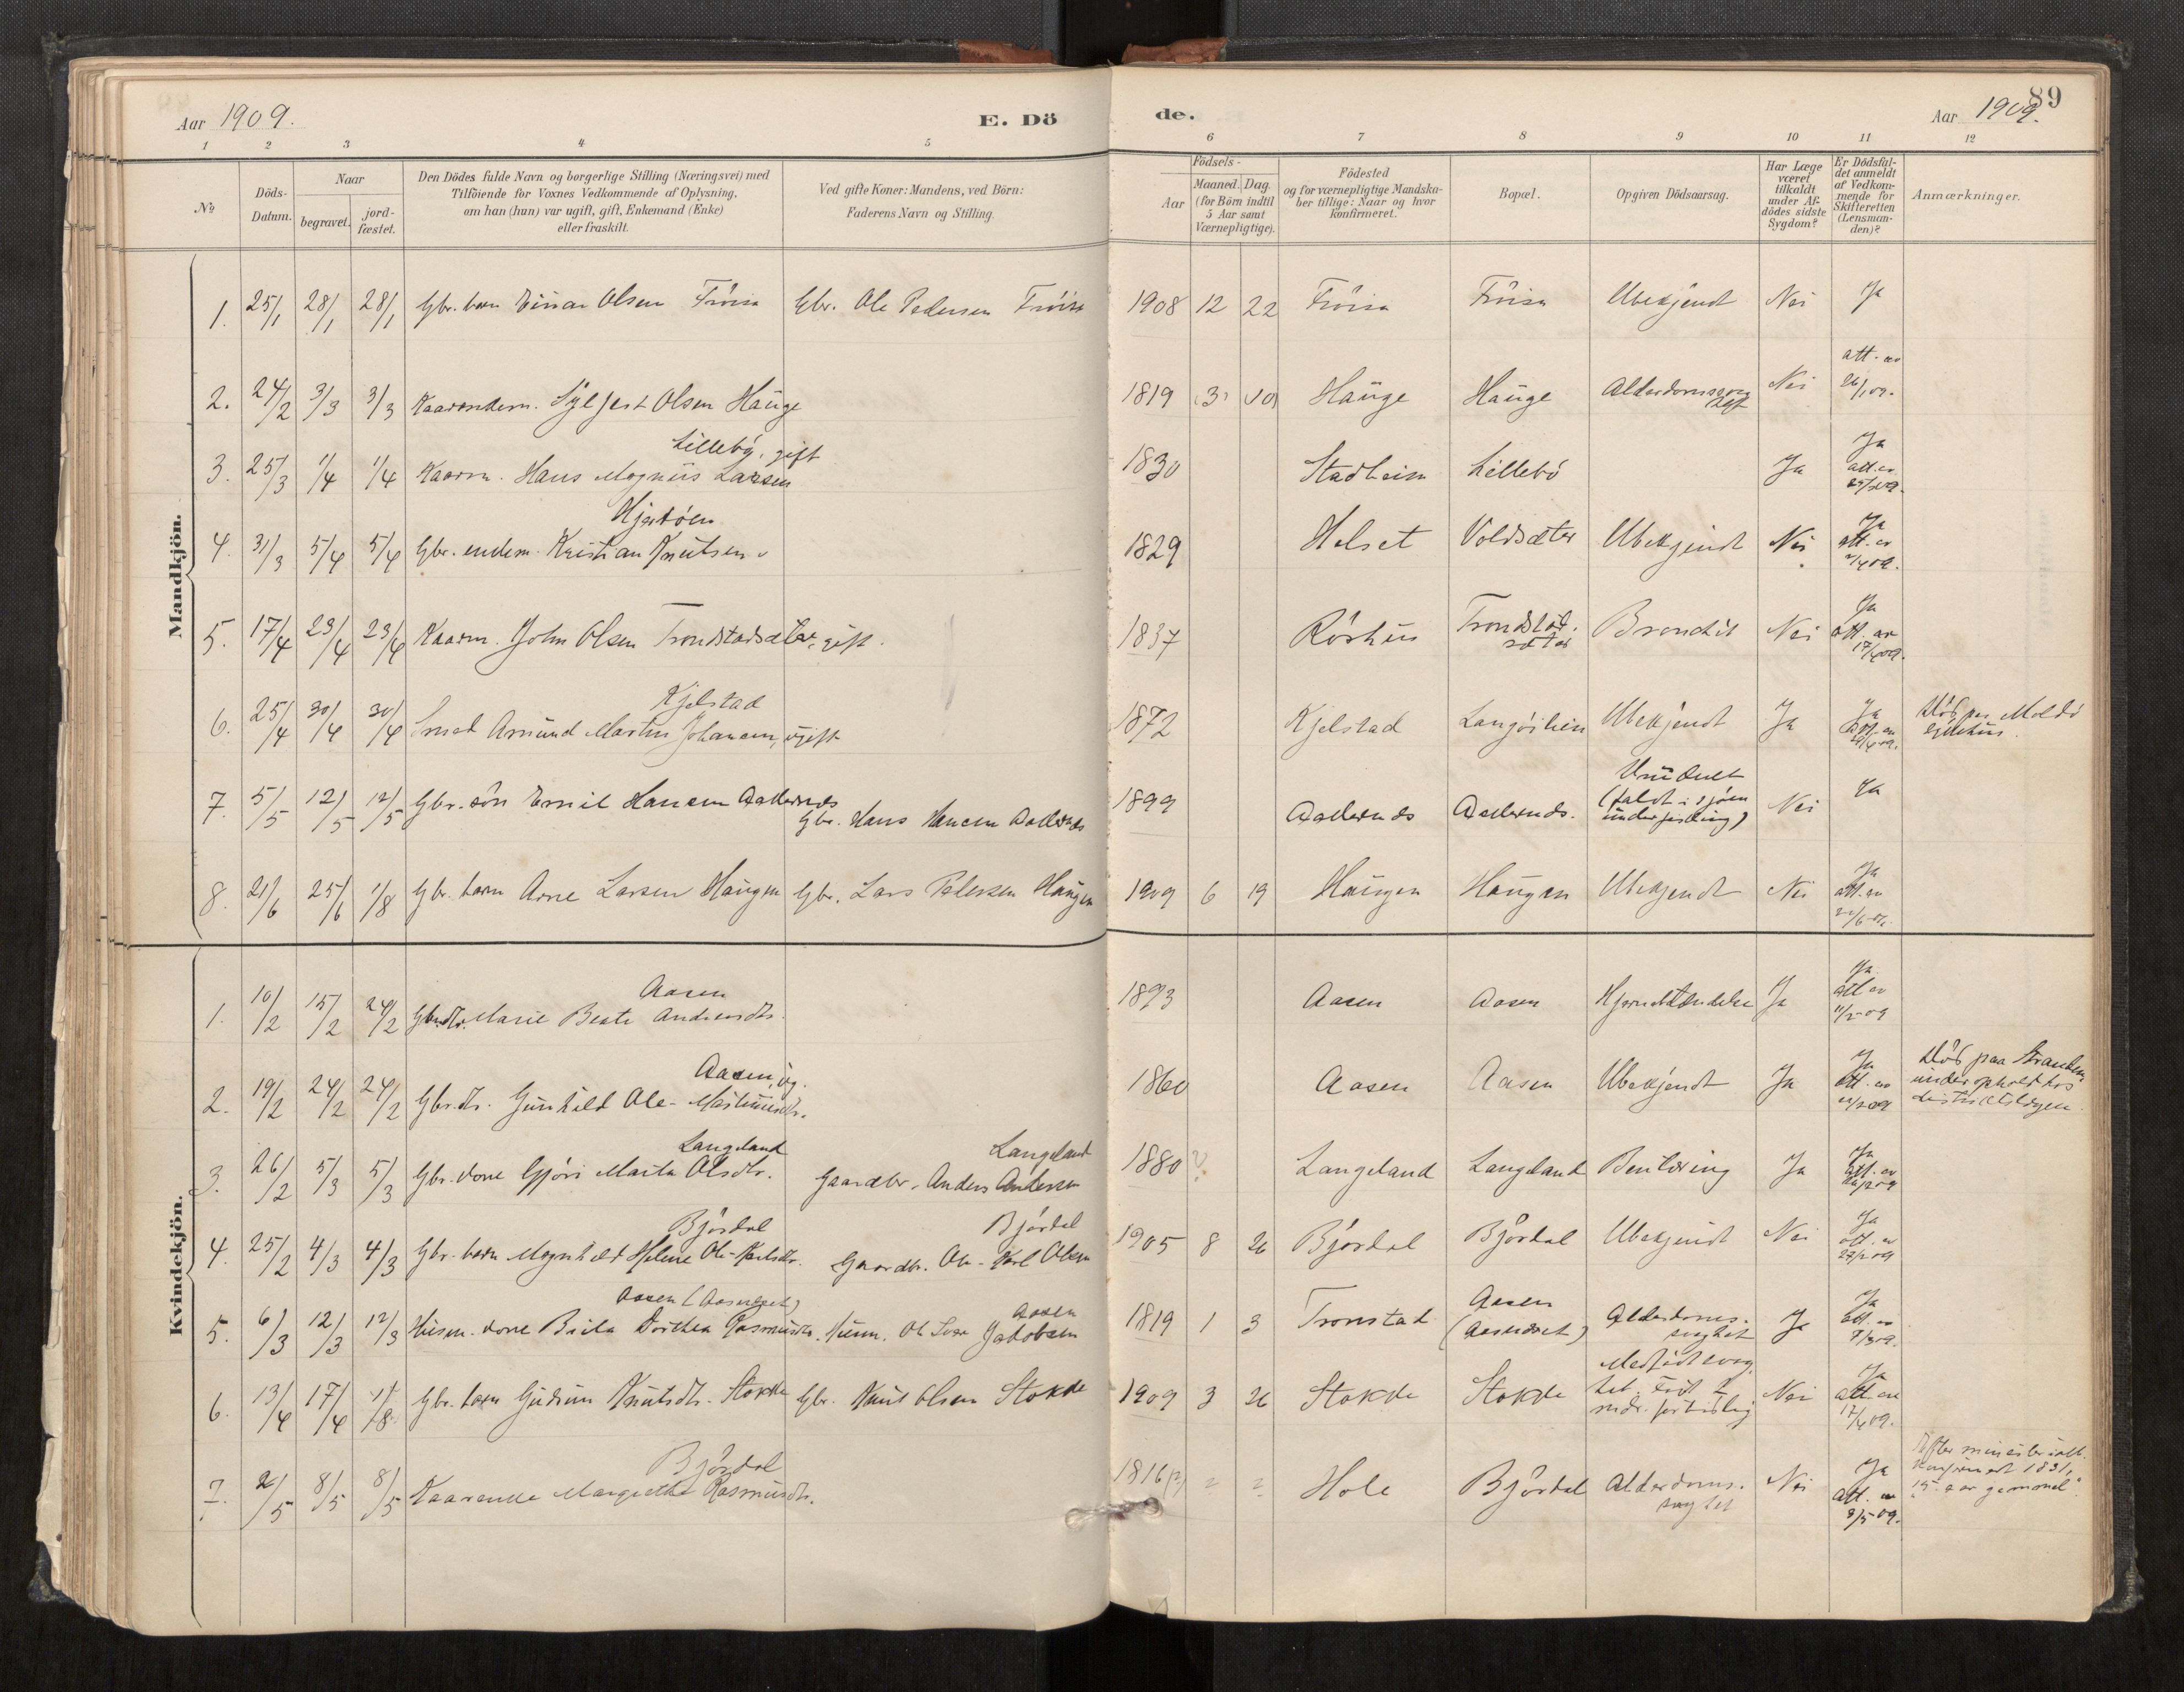 Aar 1909.
E. Dö
de.
Aar 1909.
89
1 2 3 4 5 6 7 8 9 10 11 12
No
Döds-Datum.
Naar
begravet.
jord-fæstet.
Den Dödes fulde Navn og borgerlige Stilling (Næringsvei) med
Tilföiende for Voxnes Vedkommende af Oplysning,
om han (hun) var ugift, gift, Enkemand (Enke)
eller fraskilt.
Ved gifte Koner: Mandens, ved Börn:
Faderens Navn og Stilling.
Födsels-
Aar
Maaned. Dag.
(for Börn indtil
5 Aar samt
Værnepligtige).
Födested
og for værnepligtige Mandska-
ber tillige: Naar og hvor
konfirmeret.
Bopæl.
Opgiven Dödsaarsag.
Har Læge
været
tilkaldt
under Af-
dödes sidste
Sygdom?
Er Dödsfal-
det anmeldt
af Vedkom-
mende for
Skifteretten
(Lensman-
den)?
Anmærkninger.
Mandkjön.
1. 25/1 28/1 28/1 Gbr. barn Einar Olsen Fröisa Gbr. Ole Pedersen Fröisa 1908 12 22 Fröisa Fröisa Ubekjendt Nei Ja
2. 24/2 3/3 3/3 Kaarenkem. Syljest Olsen Hauge 1819 (3) (10) Hauge Hauge Nei att. av
3. 25/3 1/4 1/4 Kaarm. Hans Magnus Larsen Lillebö, gift 1830 Stadheim Lillebö Ja Ja att. av
4. 31/3 5/4 5/4 Gbr. enkem. Kristian Knutsen 1829 Helset Voldsæter Ubekjendt Nei Ja att. av
5. 17/4 23/4 23/4 Kaarm. John Olsen Trondstadsæter, gift. 1837 Rörhus Trondstadsæter Bronchit Nei Ja att. av 17/4 09.
6. 25/4 30/4 30/4 Smed Amund Martin Johansen, Kjelstad ugift 1872 Kjelstad Ubekjendt Ja Ja att. av Död paa Molde sykehus.
7. 5/5 12/5 12/5 Gbr. sön Emil Hansen Gbr. Hans Hansen 1899 Druknet (faldt i sjöen under fisking) Nei Ja
8. 21/6 25/6 1/8 Gbr. barn Arne Larsen Haugen Gbr. Lars Petersen Haugen 1909 6 19 Haugen Haugen Ubekjendt Nei Ja att. av
Kvindekjön.
1. 10/2 15/2 24/2 Gbr. dtr. Marie Beate Andreasdtr. Aasen 1893 Aasen Aasen Hjernebetændelse Ja Ja att. av
2. 19/2 24/2 24/2 Gbr. dtr. Gunhild Ole-Martinusdtr. Aasen, ug. 1860 Aasen Aasen Ubekjendt Ja Ja att. av Död paa Stranden under ophold hos distriktslægen.
3. 26/2 5/3 5/3 Gbr. kone Gjöri Marta Olsdtr. Langeland Gaardbr. Anders Andersen Langeland 1880 ? Langeland Langeland Ja Ja att. av
4. 25/2 4/3 4/3 Gbr. barn Magnhild Helene Ole-Karlsdtr. Björdal Gaardbr. Ole-Karl Olsen Björdal 1905 8 26 Björdal Björdal Ubekjendt Nei Ja att. av 27/2 09
5. 6/3 12/3 12/3 Husm. kone Brita Dorthea Rasmusdtr. Aasen (Aasneset) Husm. Jakobsen Aasen 1819 1 3 Tronstad Aasen (Aasneset) Alderdoms-svaghet Ja Ja att. av 7/3 09.
6. 13/4 17/4 1/8 Gbr. barn Gudrun Knutsdtr. Stokke Gbr. Knut Olsen Stokke 1909 3 26 Stokke Stokke Medfödt svaghet. Född 2 mdr. for tidlig Nei Ja att. av 17/4 09.
7. 2/5 8/5 8/5 Kaarenke Margrethe Rasmusdtr. Björdal 1816(?) ? ? Hole Björdal Alderdoms-svaghet Nei Ja att. av 3/5 09. Efter ministerialb. konfirmert 1831, "15 aar gammel".